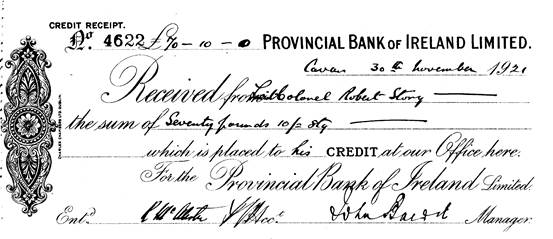 CREDIT RECEIPT.
No 4622 £70-10-0 PROVINCIAL BANK OF IRELAND LIMITED.
Cavan 30th November 1921
Received from Lieut Colonel Robert Story
the sum of Seventy pounds 10/= Stg
which is placed to his CREDIT at our Office here.
For the Provincial Bank of Ireland Limited.
Entd. Acct. John Manager.
CHARLES CHAMBERS LTD DUBLIN